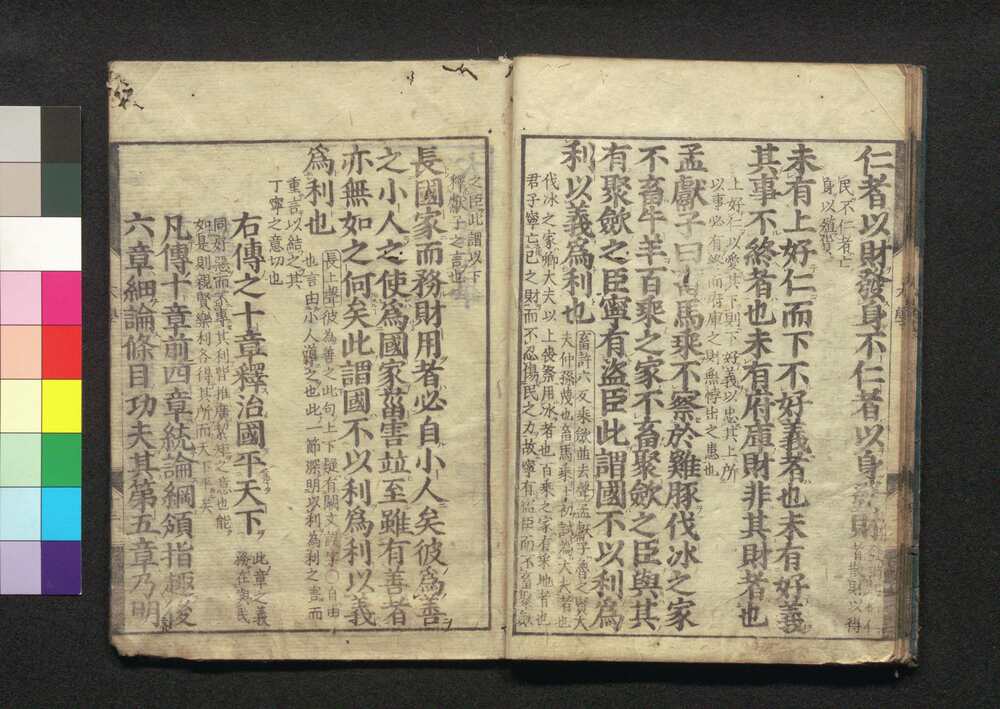 仁者以財發身不仁者以身發財
仁者散財以得
民不仁者亡
身以殖貨
未有上好仁而下不好義者也未有好義
其事不終者也未有府庫財非其財者也
上好仁以愛其下則下好義以忠其上所
以事必有終而府庫之財無悖出之患也
孟獻子曰畜馬乘不察於雞豚伐冰之家
不畜牛羊百乘之家不畜聚斂之臣與其
有聚斂之臣寧有盜臣此謂國不以利爲
利以義爲利也
畜許六反乘斂並去聲孟獻子魯之賢大
夫仲孫蔑也畜馬乘士初試爲大夫者也
伐冰之家卿大夫以上喪祭用冰者也百乘之家有采地者也
君子寧亡己之財而不忍傷民之力故寧有盜臣而不畜聚斂
之臣此謂以下
釋獻子之言也
長國家而務財用者必自小人矣彼爲善
之小人之使爲國家菑害並至雖有善者
亦無如之何矣此謂國不以利爲利以義
爲利也
長上聲彼為善之此句上下疑有闕文誤字○自由
也言由小人導之也此一節深明以利為利之害而
重言以結之其
丁寧之意切也
右傳之十章釋治國平天下
此章之義
務在與民
同好惡而不專其利皆推廣絜矩之意也能
如是則親賢樂利各得其所而天下平矣
凡傳十章前四章統論綱領指趣後
六章細論條目功夫其第五章乃明